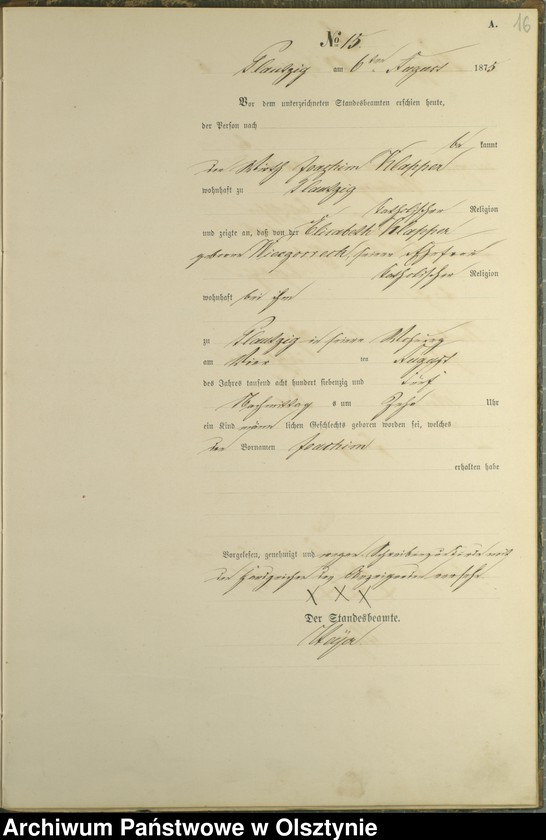 A. 16
No 15.
Plautzig am 6ten August 1875
Vor dem unterzeichneten Standesbeamten erschien heute,
der Person nach
be kannt
der Wirth Joachim Klapper
wohnhaft zu Plautzig
katholischer Religion
und zeigte an, daß von der Elisabeth Klapper
geboren seine Ehefrau
katholischer Religion
wohnhaft bei ihm
zu Plautzig in seine Wohnung
am Vier ten August
des Jahres tausend acht hundert siebenzig und fünf
Nachmittag s um Zehn Uhr
ein Kind männ lichen Geschlechts geboren worden sei, welches
den Vornamen Joachim
erhalten habe
Vorgelesen, genehmigt und wegen mit
den Handzeichen des Anzeigenden versehen
X X X
Der Standesbeamte.
Archiwum Państwowe w Olsztynie